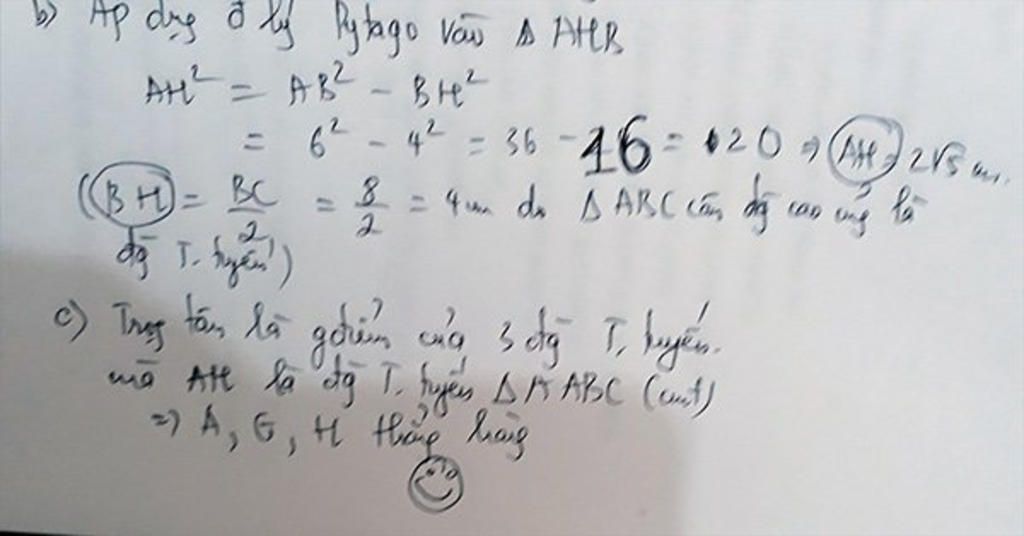 b) Áp dụg đ lý Pytago vào Δ AHB
AH² = AB² - BH²
= 6² - 4² = 36 - 16 = 20 ⇒ AH = 2√5 cm.
(BH = BC/2 = 8/2 = 4cm do Δ ABC cân đg cao cũg là
đg T. tuyến)
c) Trọg tâm là gđiểm của 3 đg T. tuyến.
mà AH là đg T. tuyến Δ ABC (cmt)
=> A, G, H thẳng hàng